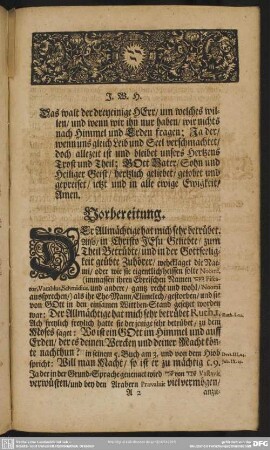 J. W. H.
Das walt der dreyeinige HErr/ um welches wil-
len/ und wenn wir ihn nur haben/ wir nichts
nach Himmel und Erden fragen; Ja der/
wenn uns gleich Leib und Seel verschmachtet/
doch allezeit ist und bleibet unsers Hertzens
Trost und Theil: GOtt Vater/ Sohn und
Heiliger Geist/ hertzlich geliebet/ gelobet und
gepreiset/ jetzt und in alle ewige Ewigkeit/
Amen.
Vorbereitung.
DEr Allmächtige hat mich sehr betrübet.
Also/ in Christo JEsu Geliebte/ zum
Theil Betrübte/ und in der Gottselig-
keit geübte Zuhörer/ wehklaget die Na-
emi/ oder wie sie eigentlich heissen solte Noomi,
(immassen ihren Ebreischen Namen
und andere/ gantz recht und wohl/ Noomi
aussprechen/) als ihr Ehe-Mann/ Elimelech/ gestorben/ und sie
von GOtt in den einsamen Wittben-Stand gesetzet worden
war: Der Allmächtige hat mich sehr betrübt Ruth. I.
Ach freylich freylich hatte sie der jenige sehr betrübt/ zu dem
Moses sagt: Wo ist ein GOtt im Himmel und auff
Erden/ der es deinen Wercken und deiner Macht kön-
te nachthun? in seinem 5. Buch am 3. und von dem Hiob
spricht: Will man Macht/ so ist er zu mächtig c. 9.
Ja der in der Grund-Sprache genennet wird
verwüsten/ und bey den Arabern Prævaluit viel vermögen/
A 2